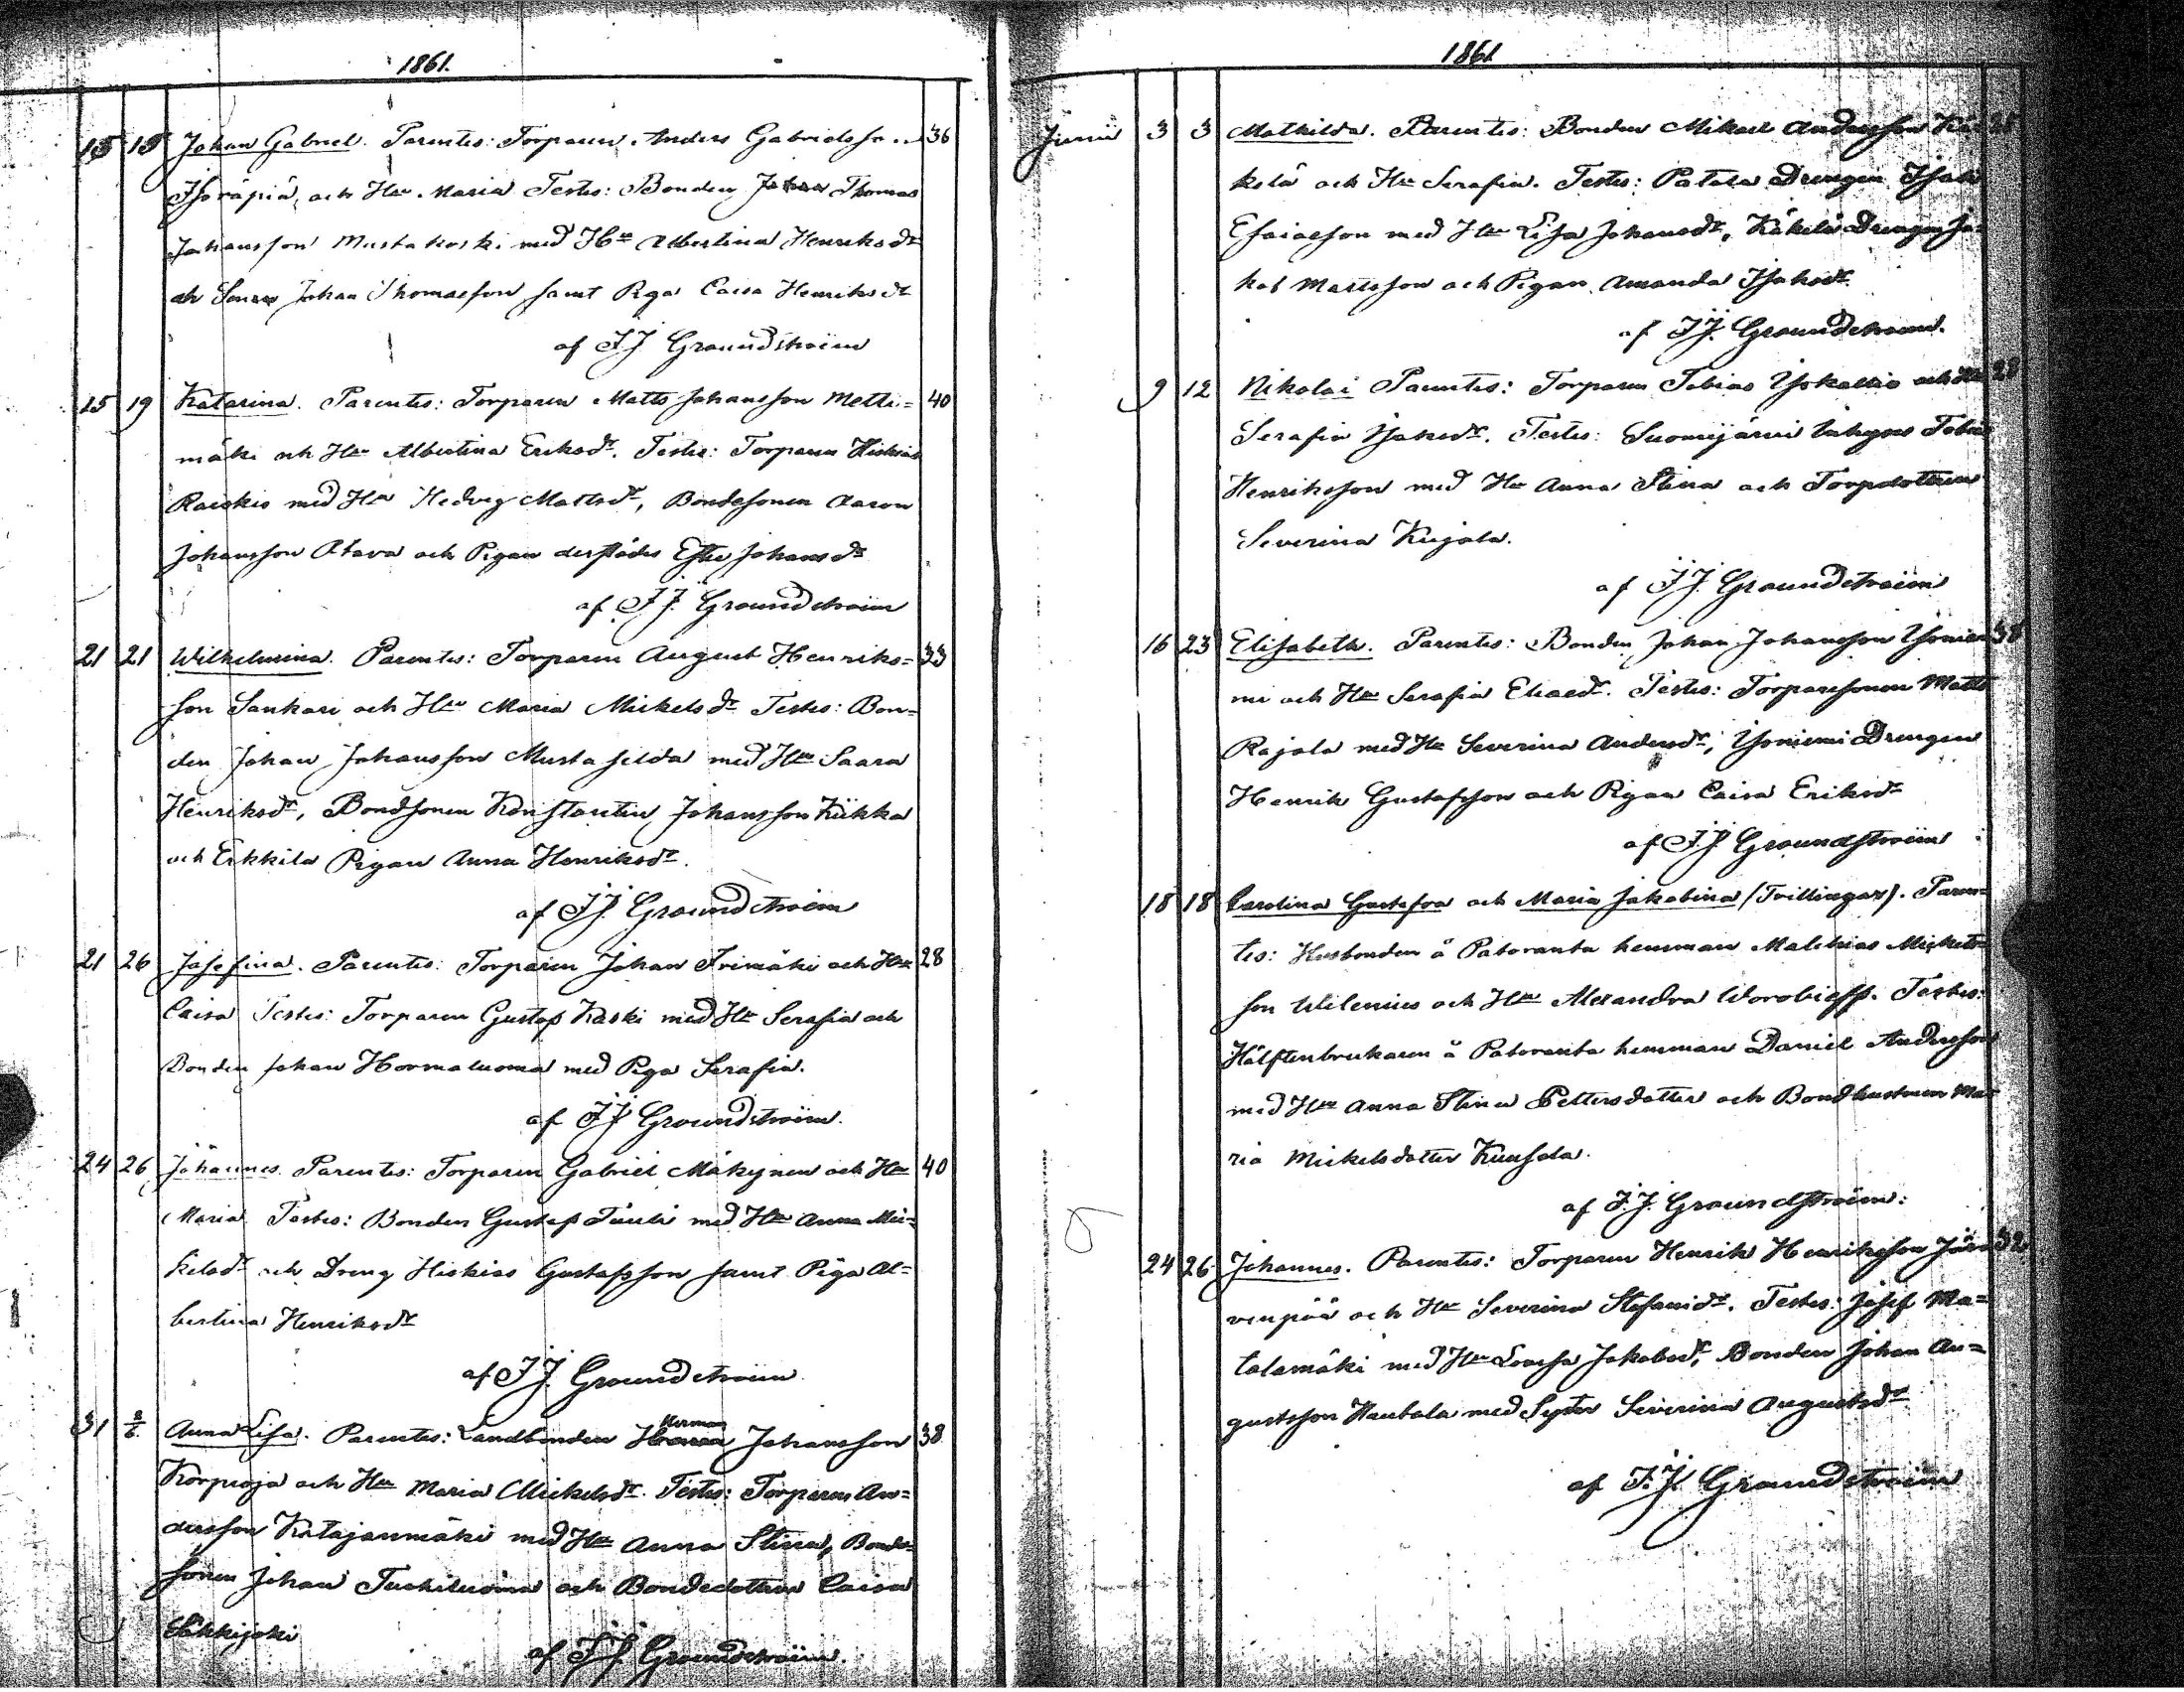 1861.
15 19 Johan Gabriel. Parentes: Torparen Anders Gabrielsson 36
Isoräpiä, och Hu Maria Testes: Bonden Thomas
Johansson Mustakoski med Hu Albertina Henriksdr
och Sonen Johan Thomasson samt Piga Caisa Henriksdr
af J.J. Groundstroëm
15 19 Katarina. Parentes: Torparen Matts Johansson Metti= 40
mäki och Hu Albertina Eriksdr. Testes: Torparen Hiskias
Raiskio med Hu Hedvig Mattsdr, Bondesonen Aaron
Johansson Atava och Pigan derstädes Ester Johansdr
af J.J. Groundstroëm
21 21 Wilhelmina. Parentes: Torparen August Henriks= 33
son Sankari och Hu Maria Mickelsdr Testes: Bon=
den Johan Johansson Mustasilda med Hu Saara
Henriksdr, Bondsonen Konstantin Johansson Kiikka
och Erkkila Pigan Anna Henriksdr.
af J.J. Groundstroëm
21 26 Josefina. Parentes: Torparen Johan Trimäki och Hu 28
Caisa Testes: Torparen Gustaf Kaski med Hu Serafia och
Bonden Johan Hormaluoma med Piga Serafia.
af J.J. Groundstroëm.
24 26 Johannes. Parentes: Torparen Gabriel Mäkynen och Hu 40
Maria Testes: Bonden Gustaf Tauli med Hu Anna Mic=
kelsdr och Dreng Hiskias Gustafsson samt Piga Al=
bertina Henriksdr
af J.J. Groundstroëm
31 2/6. Anna Lisa. Parentes: Landbonden Herman Johansson 38
Korpioja och Hu Maria Mickelsdr. Testes: Torparen An=
dersson Katajanmäki med Hu Anna Stina, Bonde=
sonen Johan Tuohiluoma och Bondedottren Caisa
Säkkijoki
af J.J. Groundstroëm.
1861
Junii 3 3 Mathilda. Parentes: Bonden Mikael Andersson Kä=
kelä och Hu Serafia. Testes: Patala Drengen Isak
Esaiasson med Hu Lisa Johansdr, Käkelä Drengen Ja=
kob Mattsson och Pigan Amanda Isaksdr.
af J.J. Groundstroëm.
9 12 Nikolai Parentes: Torparen Tobias Yokallio och Hu 28
Serafia Isaksdr. Testes: Suomijärvi Tobias
Henriksson med Hu Anna Stina och Torpdottren
Severina Kujala.
af J.J. Groundstroëm
16 23 Elisabeth. Parentes: Bonden Johan Johansson Yönie=
mi och Hu Serafia Eliaedr. Testes: Torparesonen Matts
Rajala med Hu Severina Andersdr, Yöniemi Drengen
Henrik Gustafsson och Pigan Caisa Eriksdr
af J.J. Groundstroëm
18 18 Carolina Gustafva och Maria Jakobina (Tvillingar). Paren=
tes: Husbonden å Patoranta hemman Malchias Mickels=
son Wilenius och Hu Alexandra Worobieff. Testes:
Hälftenbrukaren å Patoranta hemman Daniel Andersson
med Hu Anna Stina Pettersdotter och Bondhustrun Ma=
ria Mickelsdotter Kuusela.
af J.J. Groundstroëm:
24 26 Johannes. Parentes: Torparen Henrik Henriksson Jär= 32
venpää och Hu Severina Stefanidr. Testes: Josef Ma=
talamäki med Hu Lovisa Jakobsdr, Bonden Johan Au=
gustsson Hautala med Syster Severina Augustsdr
af J.J. Groundstroëm